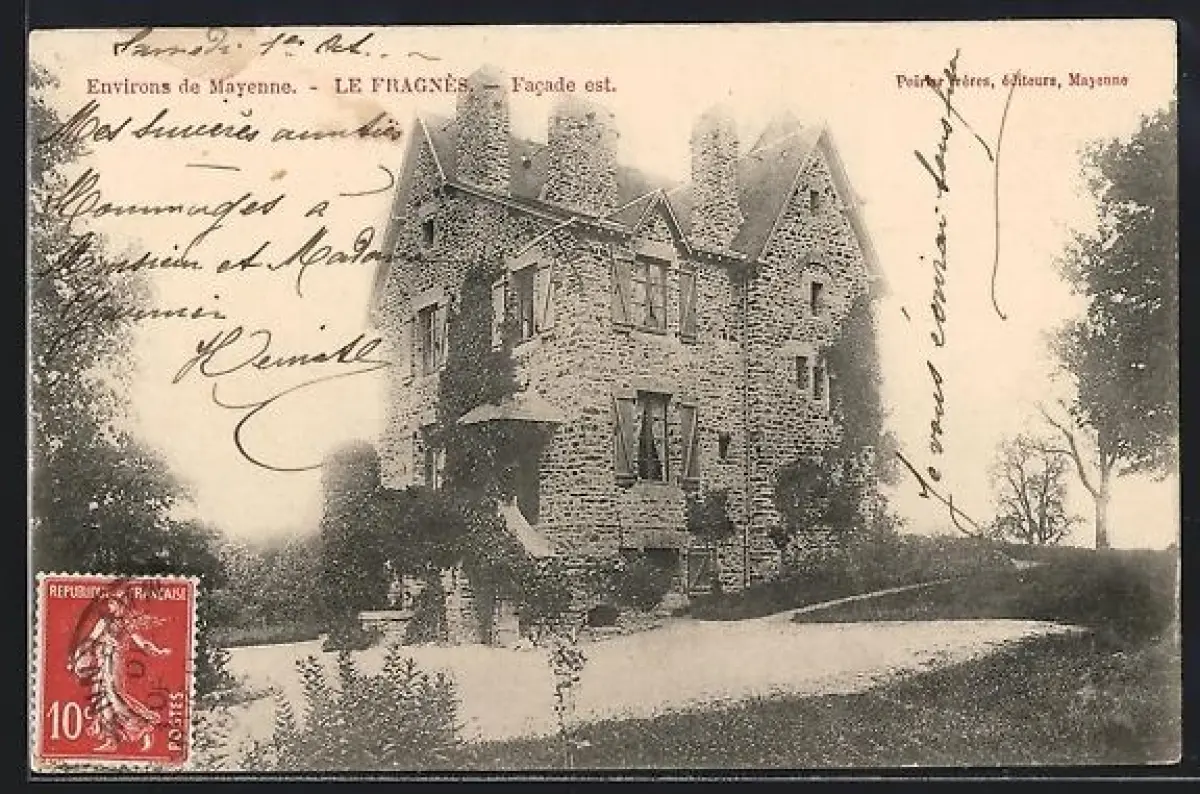 Samedi 1er Oct.
Environs de Mayenne. - LE FRAGNÈS. - Façade est.
Poirier frères, éditeurs, Mayenne
Mes sincères amitiés
Hommages à
Monsieur et Madame
je vous écrirai
REPUBLIQUE FRANÇAISE
10c
POSTES